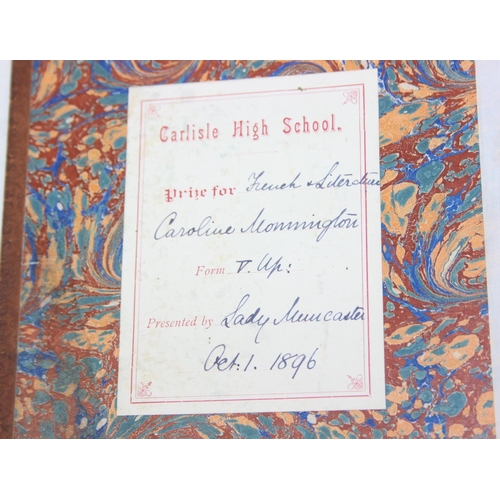 Carlisle High School.
Prize for French & Literature
Caroline Monnington
Form V. Up:
Presented by Lady Muncaster
Oct. 1. 1896